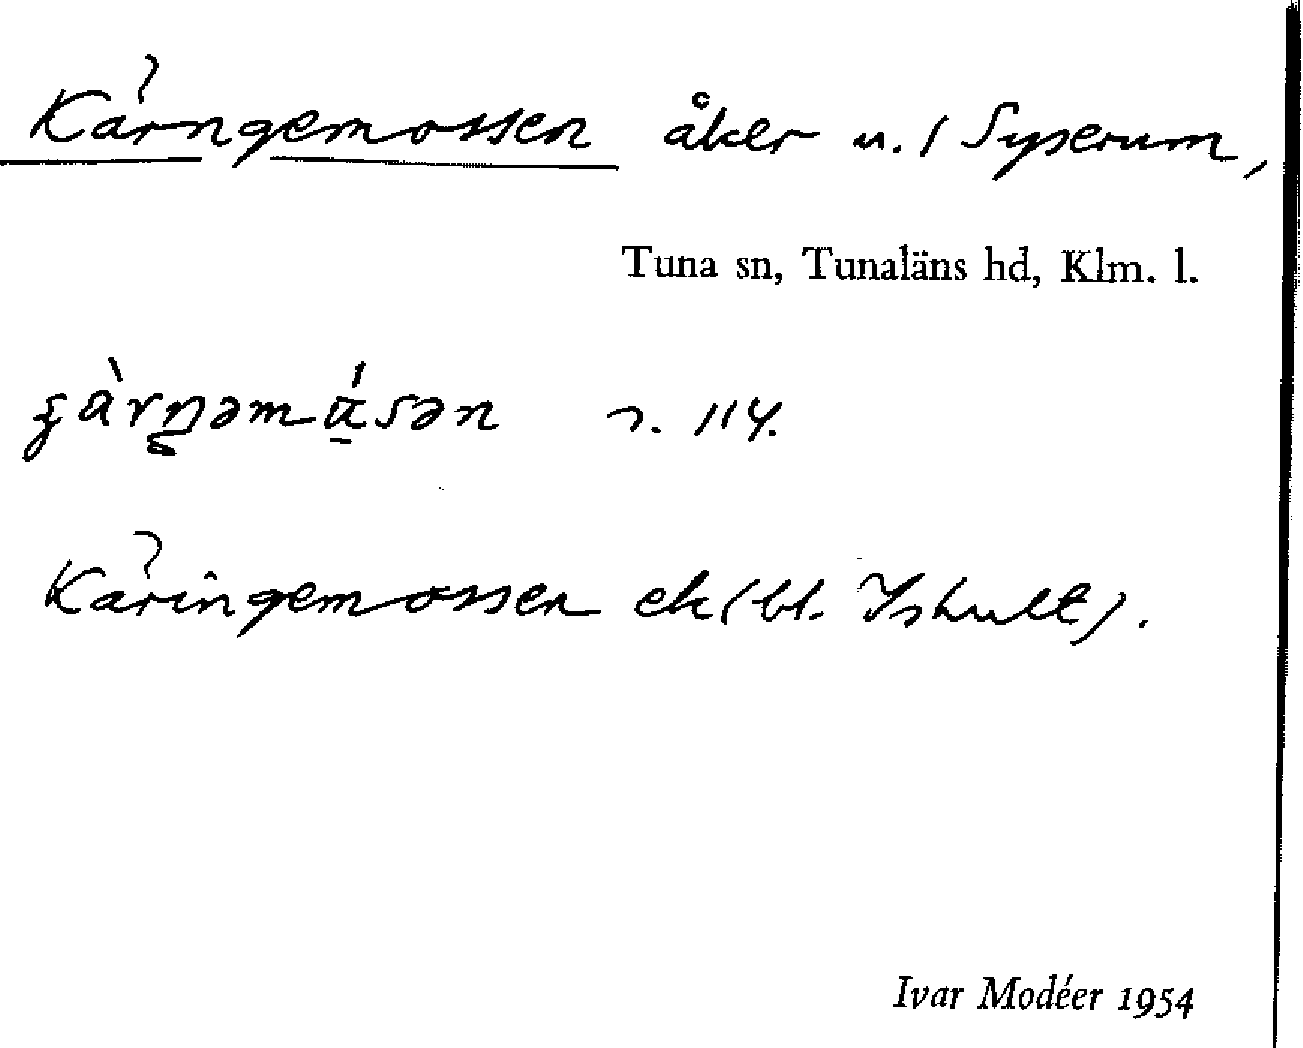 Kärngemossen åker u. / Syserum,
Tuna sn, Tunaläns hd, Klm. l.
114.
Käringemossen ek (bl. Ishult).
Ivar Modéer 1954